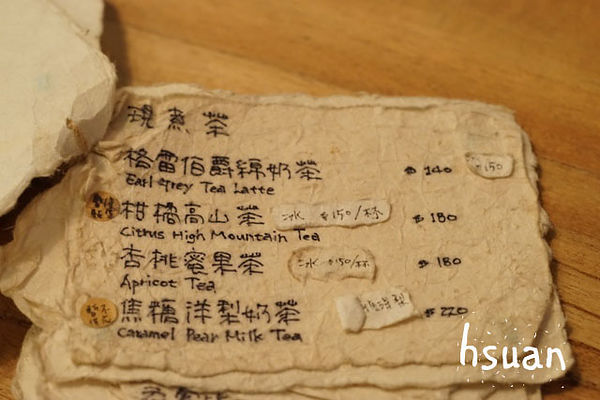 現煮茶
格雷伯爵綿奶茶 $140 $150
Earl Grey Tea Latte
柑橘高山茶 冰 $150/杯 $180
Citrus High Mountain Tea
杏桃蜜果茶 冰 $150/杯 $180
Apricot Tea
焦糖洋梨奶茶 $220
Caramel Pear Milk Tea
hsuan